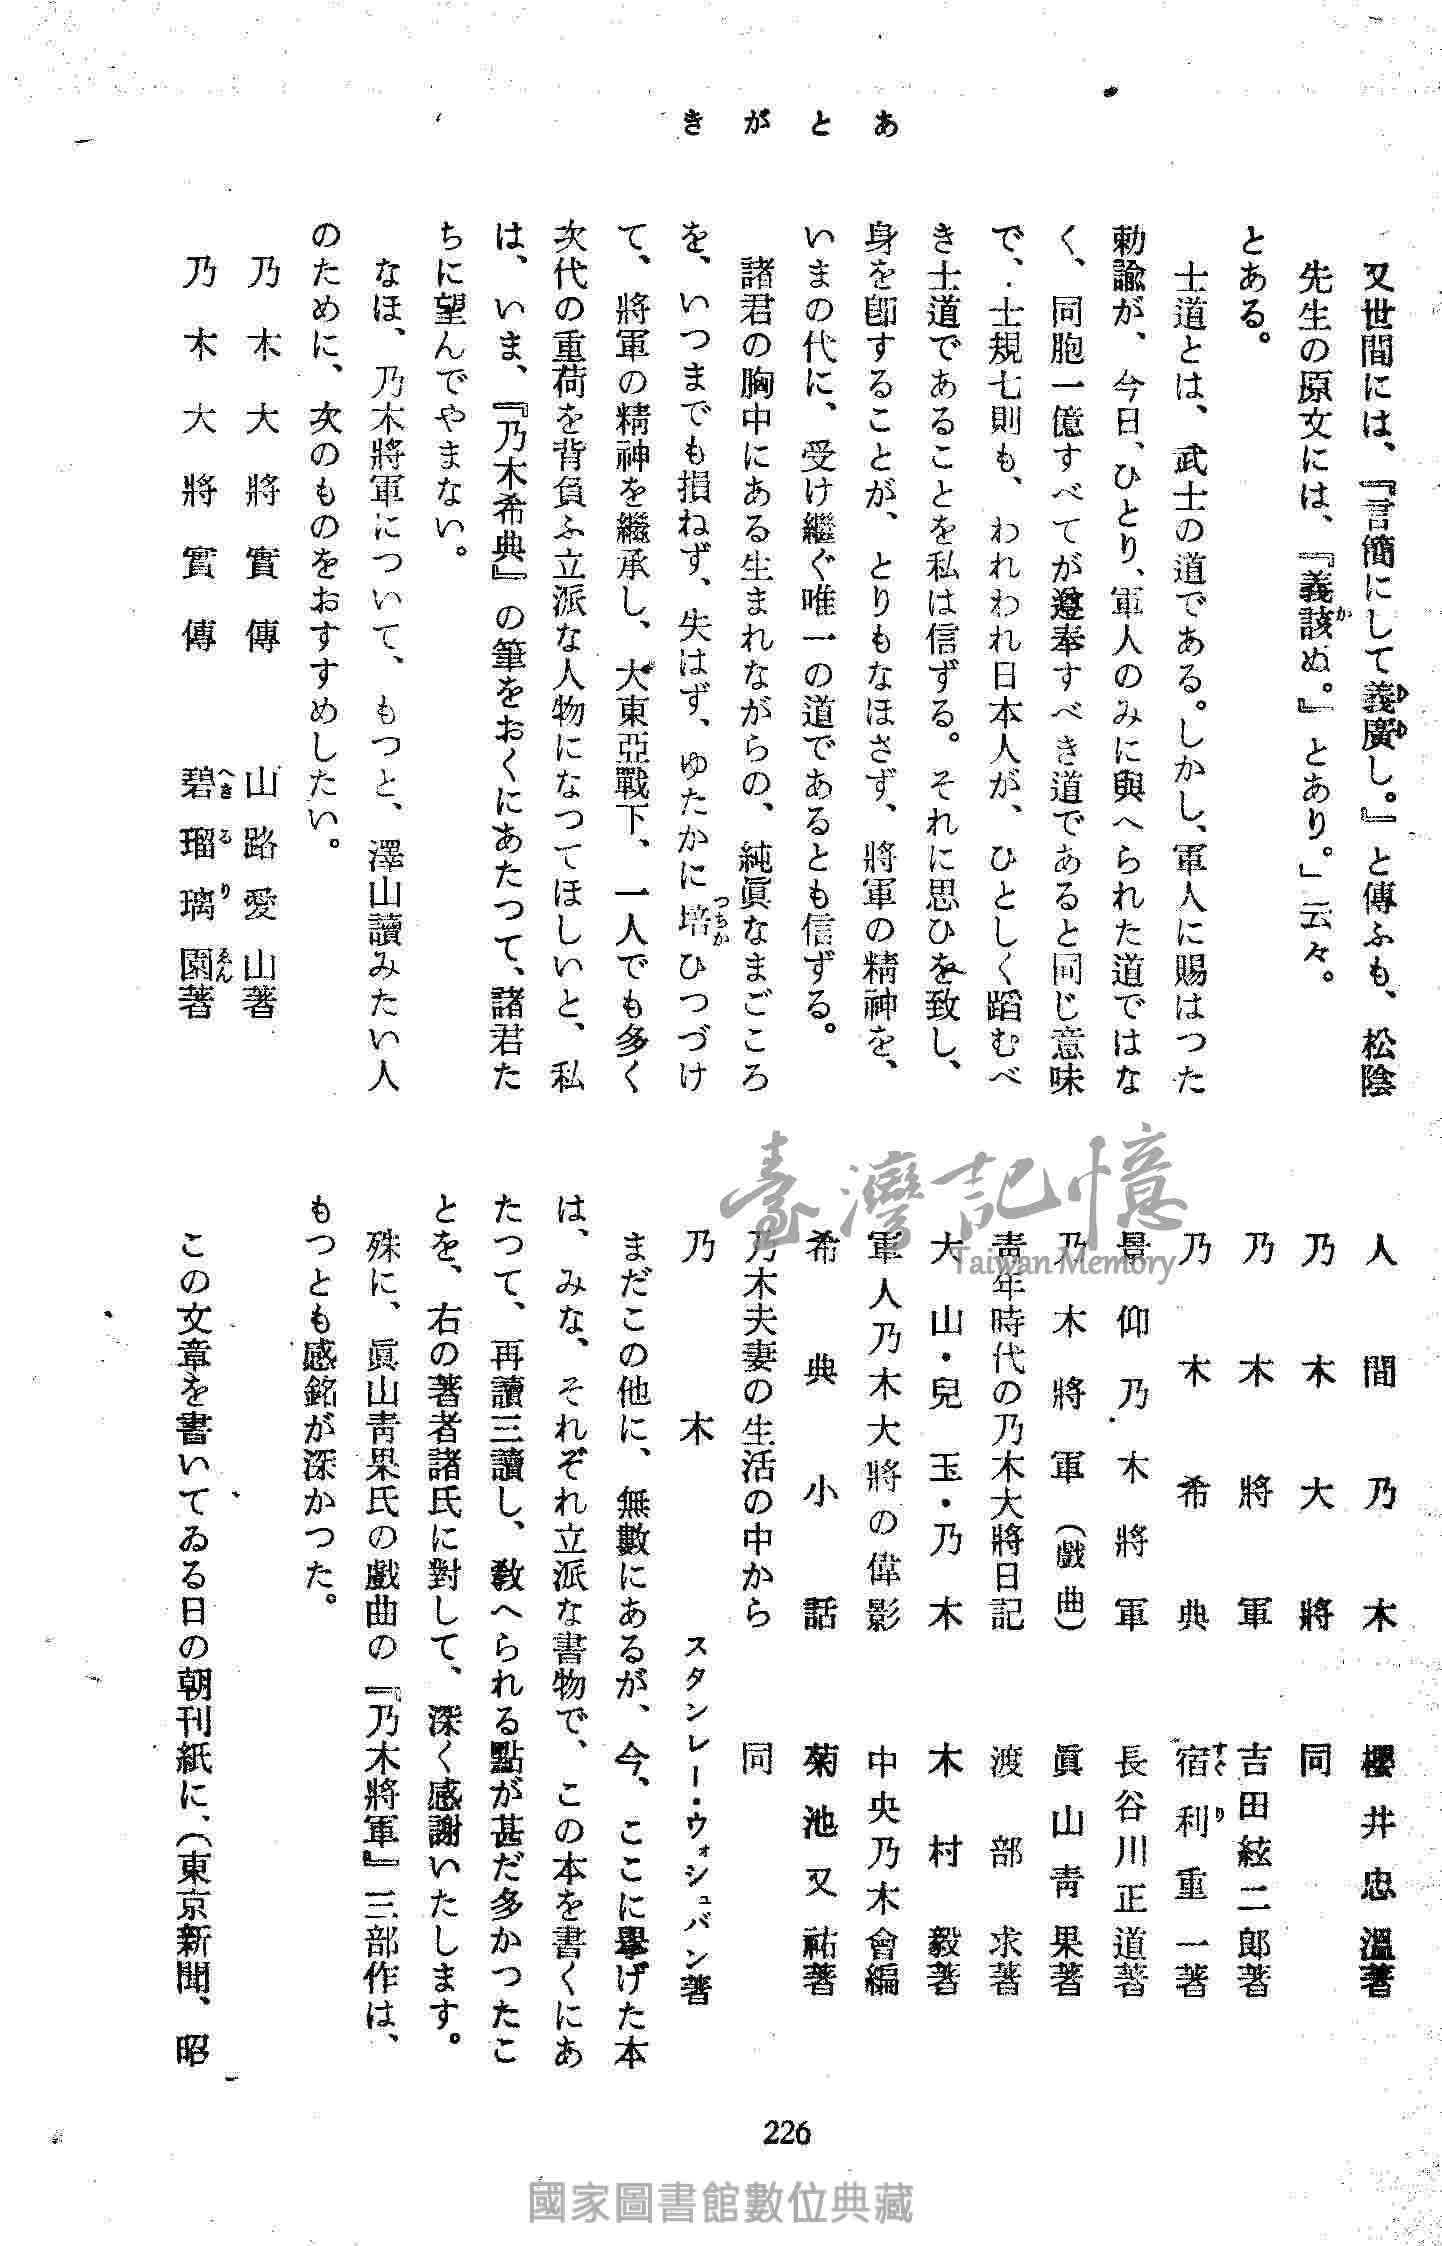 あとがき
又世間には、『言簡にして義廣し。』と傳ふも、松陰
先生の原文には、『義該ぬ。』とあり。」云々。
とある。
士道とは、武士の道である。しかし、軍人に賜はつた
勅諭が、今日、ひとり、軍人のみに與へられた道ではな
く、同胞一億すべてが遵奉すべき道であると同じ意味
で、士規七則も、われわれ日本人が、ひとしく蹈むべ
き士道であることを私は信ずる。それに思ひを致し、
身を卽することが、とりもなほさず、將軍の精神を、
いまの代に、受け繼ぐ唯一の道であるとも信ずる。
諸君の胸中にある生まれながらの、純眞なまごころ
を、いつまでも損ねず、失はず、ゆたかに培ひつづけ
て、將軍の精神を繼承し、大東亞戰下、一人でも多く
次代の重荷を背負ふ立派な人物になつてほしいと、私
は、いま、『乃木希典』の筆をおくにあたつて、諸君た
ちに望んでやまない。
なほ、乃木將軍について、もつと、澤山讀みたい人
のために、次のものをおすすめしたい。
乃木大將實傳 山路愛山著
乃木大將實傳 碧瑠璃園著
人間乃木 櫻井忠溫著
乃木大將 同
乃木將軍 吉田絃二郎著
乃木希典 宿利重一著
景仰乃木將軍 長谷川正道著
乃木將軍（戲曲） 眞山靑果著
靑年時代の乃木大將日記 渡部求著
大山・兒玉・乃木 木村毅著
軍人乃木大將の偉影 中央乃木會編
希典小話 菊池又祐著
乃木夫妻の生活の中から 同
乃木 スタンレー・ウォシュバン著
まだこの他に、無數にあるが、今、ここに擧げた本
は、みな、それぞれ立派な書物で、この本を書くにあ
たつて、再讀三讀し、敎へられる點が甚だ多かつたこ
とを、右の著者諸氏に對して、深く感謝いたします。
殊に、眞山靑果氏の戲曲の『乃木將軍』三部作は、
もつとも感銘が深かつた。
この文章を書いてゐる日の朝刊紙に、（東京新聞、昭
226
臺灣記憶
Taiwan Memory
國家圖書館數位典藏